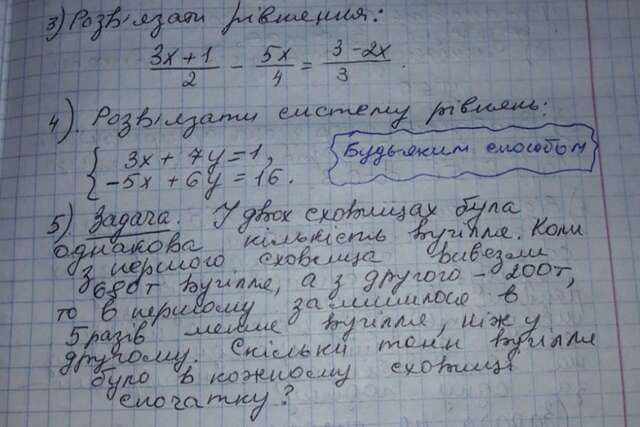 3) Розв'язати рівняння:
(3x+1)/2 - 5x/4 = (3-2x)/3.
4). Розв'язати систему рівнянь:
{ 3x + 7y = 1,
-5x + 6y = 16.
Будь-яким способом
5). Задача. У двох сховищах була
однакова кількість вугілля. Коли
з першого сховища вивезли
680т вугілля, а з другого - 200т,
то в першому залишилося в
5 разів менше вугілля, ніж у
другому. Скільки тонн вугілля
було в кожному сховищі
спочатку?